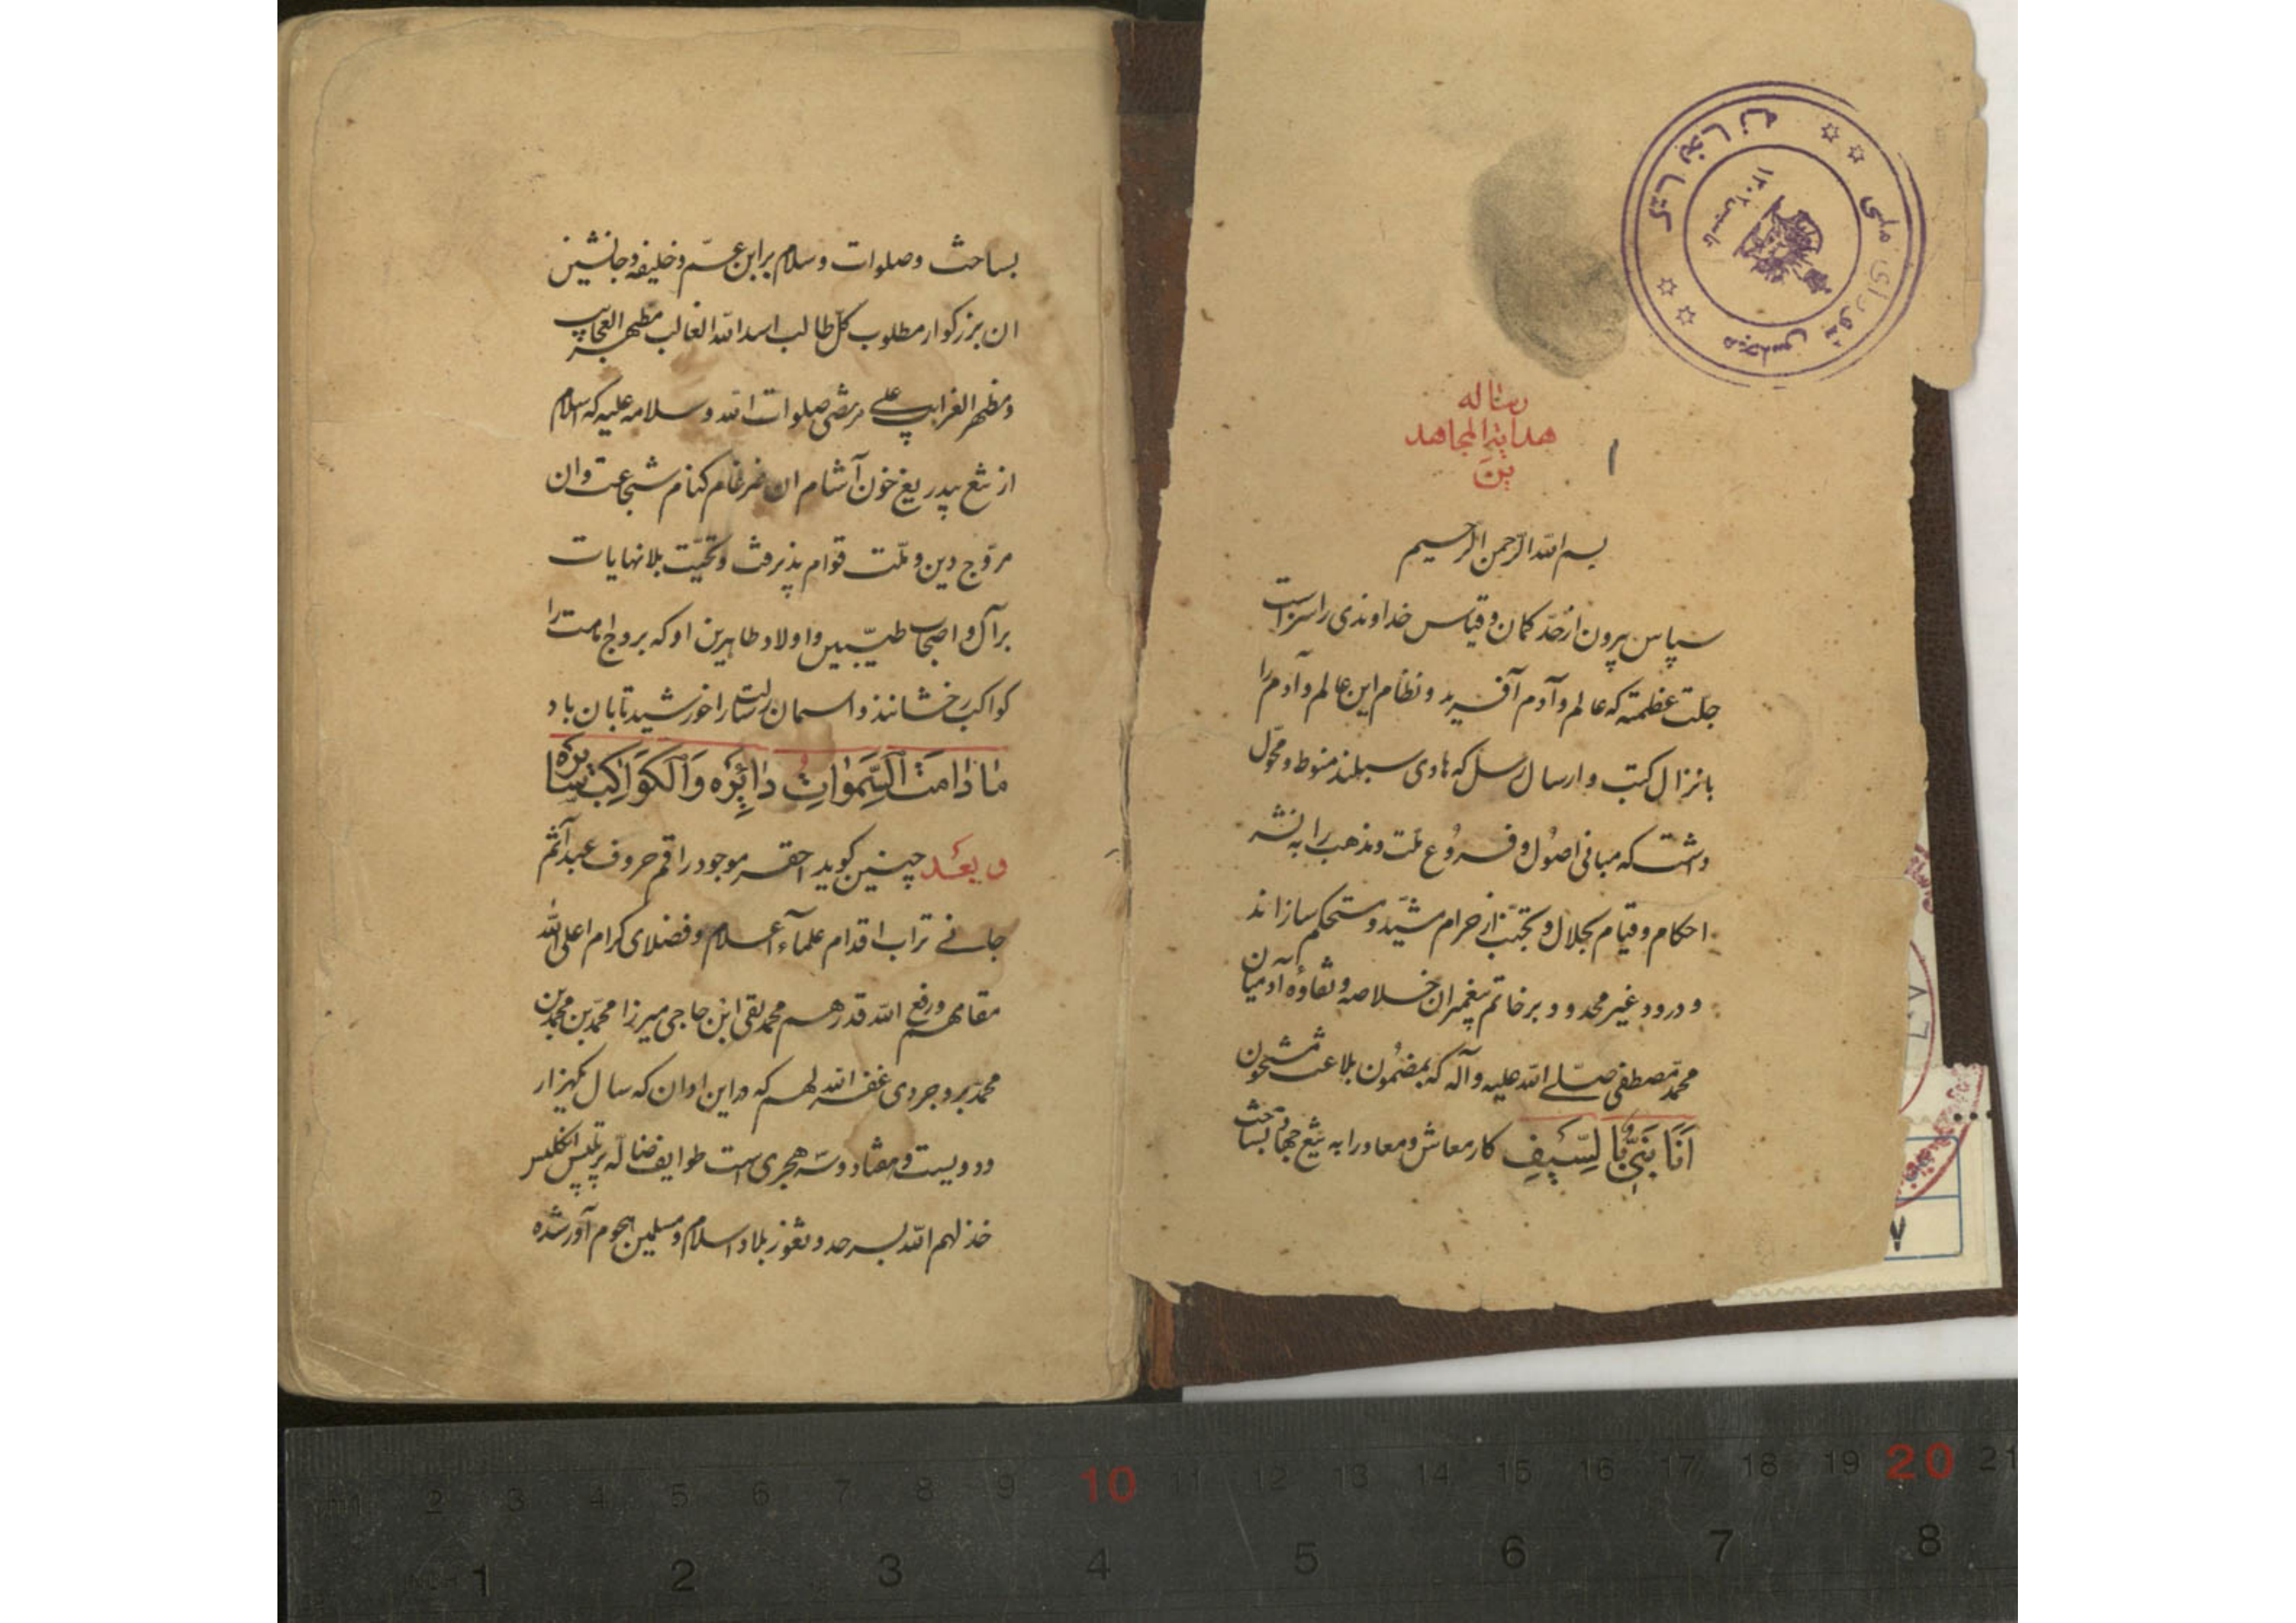 کتابخانه
مجلس شورای ملی
تاسیس ۱۳۰۲
رساله
هدایة المجاهد
ین
۱
بسم الله الرحمن الرحیم
سپاس بیرون از حدّ کمان و قیاس خداوندی را سزاست
جلت عظمته که عالم و آدم آفرید و نظام این عالم و آدم را
بانزال کتب و ارسال رسل که هادی سبیلند منوط و محوّل
داشت که مبانی اصُول و فروُع ملّت و مذهب را به نشر
احکام و قیام بحلال و تجنّب از حرام مشیّد و مستحکم سازند
و درود غیر محدود بر خاتم پیغمبران خلاصه و نقاوهٔ آدمیان
محمّد مصطفی صلّی الله علیه و آله که بمضمُون بلاغت مشحون
اَنَا نَبِیٌّ بِالسَّیفِ کار معاش و معاد را به تیغ جهاد بساخت
بساخت و صلوات و سلام بر ابن عمّ و خلیفه و جانشین
ان بزرکوار مطلوب کل طالب اسد الله الغالب مظهر العجایب
و مظهر الغرایب علی مرتضی صلوات الله و سلامه علیه که اسلام
از تیغ بیدریغ خون آشام ان ضرغام کنام شجاعت و ان
مروّج دین و ملّت قوام پذیرفت و تحیّت بلا نهایات
بر آل و اصحاب طیّبین و اولاد طاهرین او که بروج امامت را
کواکب رخشانند و اسمان رسالت را خورشید تابان باد
مٰا دٰامَتِ السَّمٰوٰاتُ دٰائِرَه وَالکَوٰاکِبُ سٰایرَه
و بعد چنین کوید احقر موجود راقم حروف عبد آثم
جانی تراب اقدام علماء آعلام و فضلای کرام اعلی الله
مقامهم و رفع الله قدرهم محمد تقی ابن حاجی میرزا محمّد بن محمّد بن
محمّد بروجردی غفر الله لهم که در این اوان که سال یکهزار
و دویست و هفتاد و سه هجری است طوایف ضالّه برتیس انکلیس
خذلهم الله بسرحد و ثغور بلاد اسلام و مسلمین هجوم آور شده